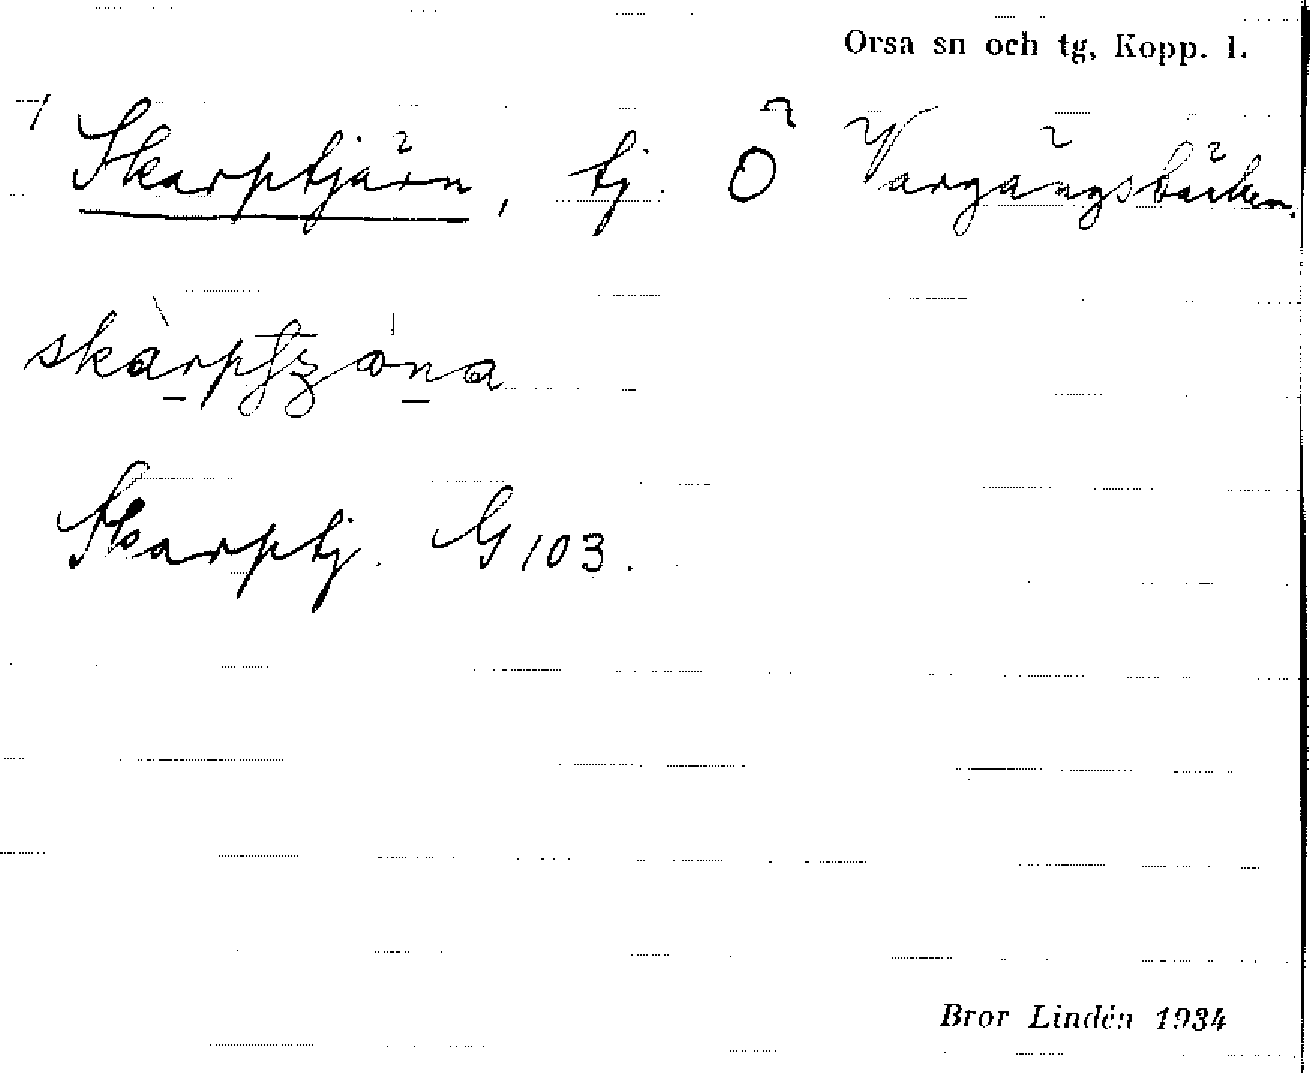 Orsa sn och tg, Kopp. l.
Skarptjärn, tj. Ö Vargängsbäcken.
Skarptj. G 103.
Bror Lindén 1934